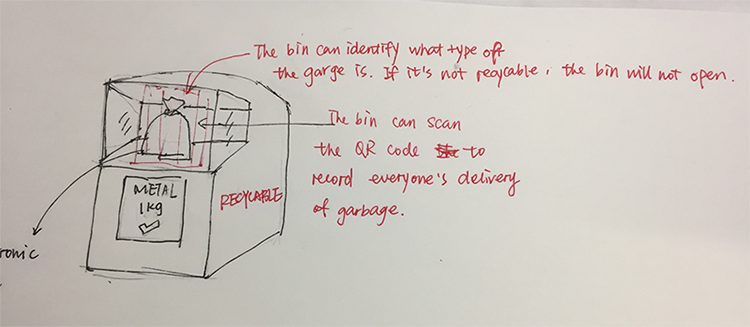 The bin can identify what type off
the garge is. If it's not reaycable, the bin will not open.
The bin can scan
the QR code to
record everyone's delivery
of garbage.
METAL
1kg
RECYCABLE
ronic